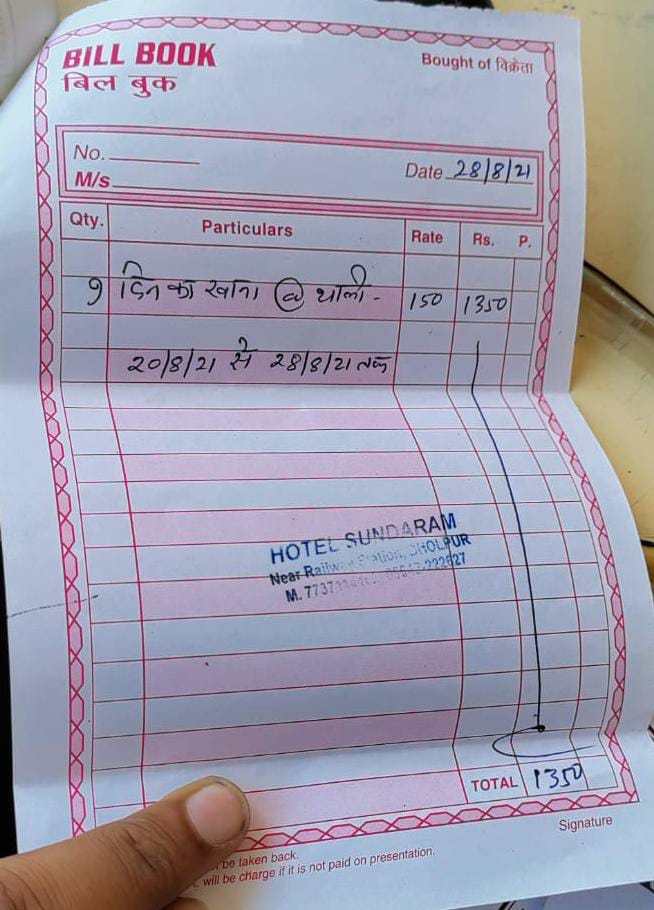 BILL BOOK
बिल बुक
Bought of विक्रेता
No.
Date 28/8/21
M/s
Qty. Particulars Rate Rs. P.
9 दिन का खाना @ थाली - 150 1350
20/8/21 से 28/8/21 तक
HOTEL SUNDARAM
Near Railway Station, DHOLPUR
M.
TOTAL 1350
Signature
be taken back.
will be charge if it is not paid on presentation.